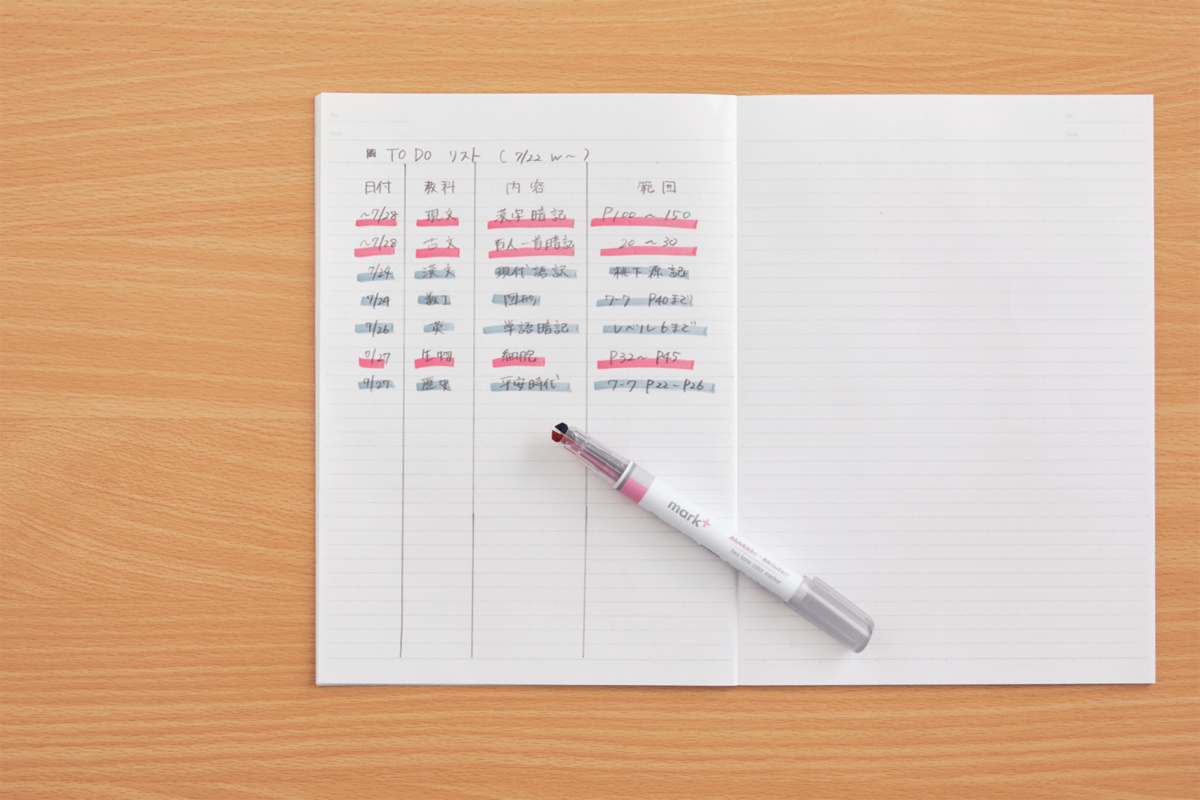 TO DO リスト ( 7/22 w〜 )
日付 教科 内容 範囲
〜7/28 現文 漢字暗記 P100 〜 150
〜7/28 古文 百人一首暗記 20 〜 30
7/24 漢文 現代語訳 桃下源記
7/24 数I 図形 ワーク P40まで
7/26 英 単語暗記 レベル6まで
7/27 生物 細胞 P32〜 P45
7/27 歴史 平安時代 ワーク P22〜P26
mark+
two tone color marker